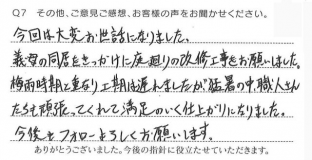 Q7 その他、ご意見ご感想、お客様の声をお聞かせください。
今回は大変お世話になりました。
義母の同居をきっかけに庭廻りの改修工事をお願いしました。
梅雨時期と重なり工期は遅れましたが猛暑の中職人さん
たちも頑張ってくれて満足のいく仕上がりになりました。
今後もフォローよろしくお願いします。
ありがとうございました。今後の指針に役立たせていただきます。